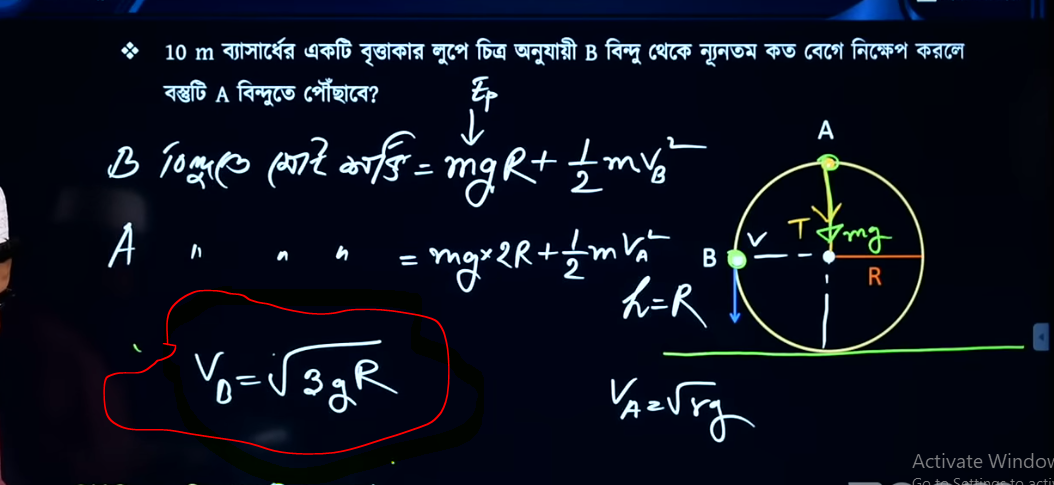 ❖ 10 m ব্যাসার্ধের একটি বৃত্তাকার লুপে চিত্র অনুযায়ী B বিন্দু থেকে ন্যূনতম কত বেগে নিক্ষেপ করলে
বস্তুটি A বিন্দুতে পৌঁছাবে?
Ep
↓
B বিন্দুতে মোট শক্তি = mgR + 1/2 mV_B²
A " " " = mg×2R + 1/2 mV_A²
h=R
V_B = √3gR
V_A = √rg
A
T mg
B V
R
Activate Window
Go to Settings to acti